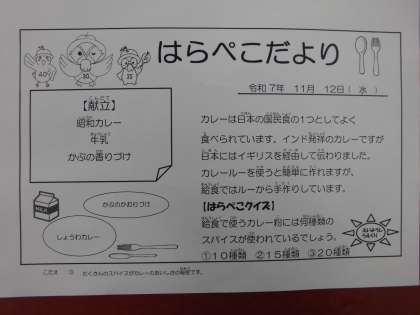 はらぺこだより
令和7年 11月 12日(水)
【献立】
昭和カレー
牛乳
かぶの香りづけ
カレーは日本の国民食の1つとしてよく
食べられています。インド発祥のカレーですが
日本にはイギリスを経由して伝わりました。
カレールーを使うと簡単に作れますが、
給食ではルーから手作りしています。
【はらぺこクイズ】
給食で使うカレー粉には何種類の
スパイスが使われているでしょう。
①10種類 ②15種類 ③20種類
かぶのかおりづけ
しょうわカレー
MILK
こたえ ③ たくさんのスパイスがカレーのおいしさの秘密です。